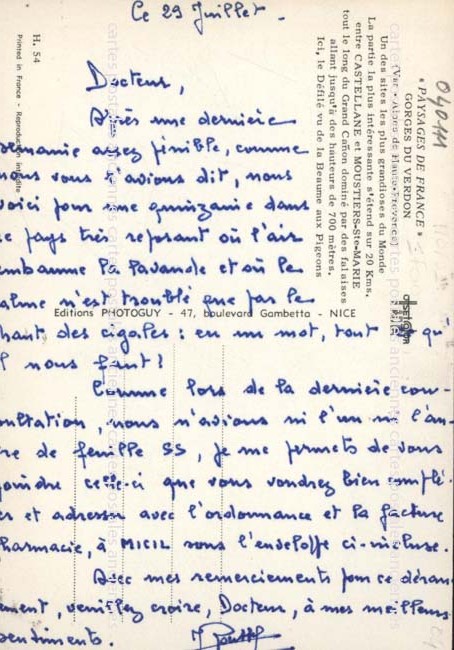 Ce 29 Juillet.
Docteur,
Après une dernière
semaine assez pénible, comme
nous vous l'avions dit, nous
voici pour une quinzaine dans
ce pays très reposant où l'air
embaume la lavande et où le
calme n'est troublé que par le
chant des cigales : en un mot, tout ce qu'
il nous faut !
Comme lors de la dernière con-
sultation, nous n'avions ni l'un ni l'au-
tre de feuille SS, je me permets de vous
joindre celle-ci que vous voudrez bien
et adresser avec l'ordonnance et la facture
Pharmacie, à MICIL sous l'enveloppe ci-incluse.
Avec mes remerciements pour ce déran-
gement, veuillez croire, Docteur, à mes meilleurs
sentiments.
040111
* PAYSAGES DE FRANCE *
GORGES DU VERDON
(Var - Alpes de Haute-Provence)
Un des sites les plus grandioses du Monde
La partie la plus intéressante s'étend sur 20 Kms.
entre CASTELLANE et MOUSTIERS-Ste-MARIE
tout le long du Grand Cañon dominé par des falaises
allant jusqu'à des hauteurs de 700 mètres.
Ici, le Défilé vu de la Beaume aux Pigeons
Editions PHOTOGUY - 47, boulevard Gambetta - NICE
H. 54
Printed in France - Reproduction interdite